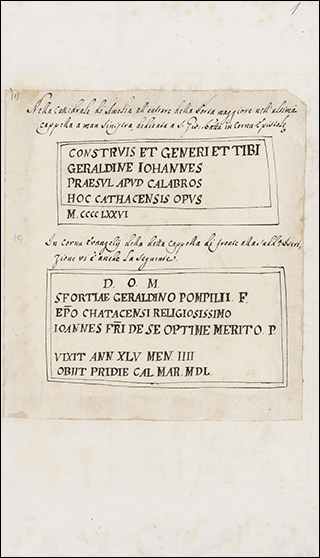 1
Nella Cattedrale di Amelia all'entrare della Porta maggiore nell'ultima
cappella a man sinistra dedicata a S. Gio: Batta in cornu Epistolę
CONSTRVIS ET GENERI ET TIBI
GERALDINE IOHANNES
PRAESVL APVD CALABROS
HOC CATHACENSIS OPVS
M. CCCCLXXVI
In cornu Evangelij della cappella di fronte alla Inscri-
zione vi è anche la seguente.
D. O. M.
SFORTIAE GERALDINO POMPILII. F.
EP̃O CHATACENSI RELIGIOSISSIMO
IOANNES FR̃I DE SE OPTIME MERITO. P
VIXIT ANN XLV MEN IIII
OBIIT PRIDIE CAL MAR. MDL.